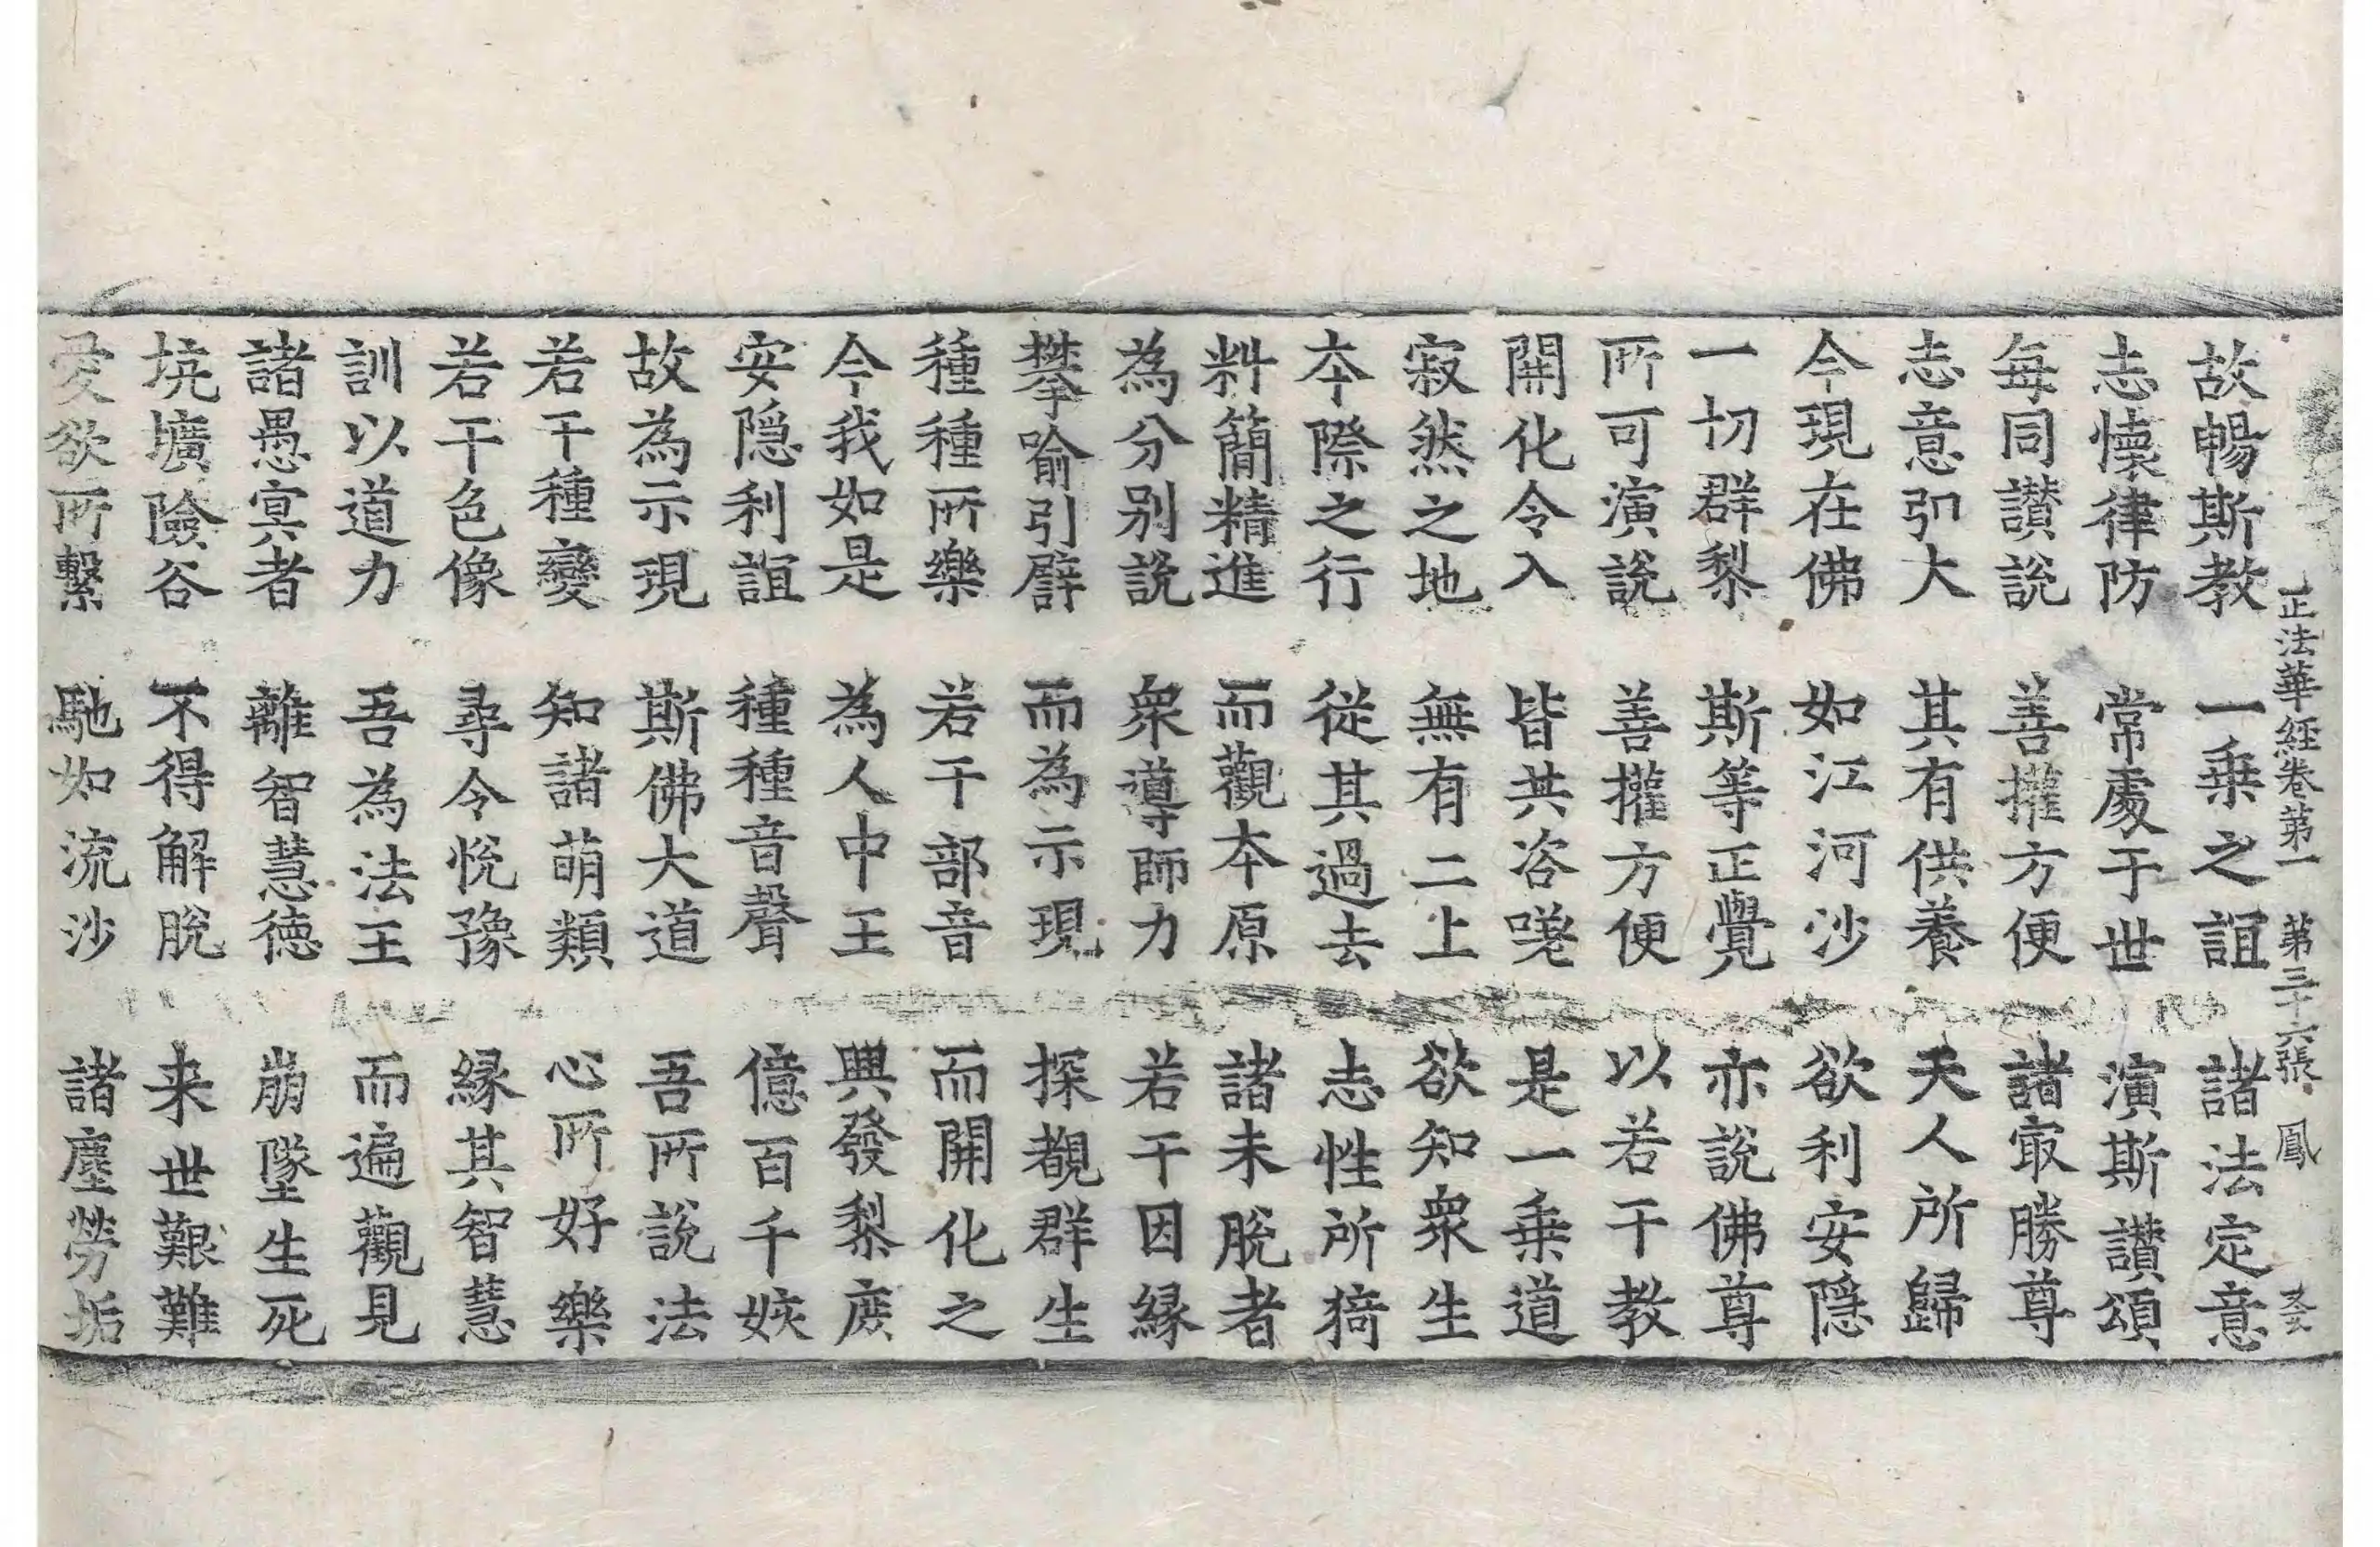 正法華經卷第一　第三十六張　鳳
故暢斯教　一乗之誼　諸法定意
志懷律防　常處于世　演斯讃頌
每同讃說　善攉方便　諸㝡勝尊
志意弘大　其有供養　天人所歸
今現在佛　如江河沙　欲利安隱
一切群黎　斯等正覺　亦說佛尊
所可演說　善攉方便　以若干教
開化令入　皆共咨嗟　是一乗道
寂然之地　無有二上　欲知衆生
本際之行　從其過去　志性所猗
料簡精進　而觀本原　諸未脫者
為分別說　衆導師力　若干因緣
攀喻引譬　而為示現　探覩群生
種種所樂　若干部音　而開化之
今我如是　為人中王　興發黎庶
安隱利誼　種種音聲　億百千姟
故為示現　斯佛大道　吾所說法
若干種變　知諸萌類　心所好樂
若干色像　尋令悅豫　緣其智慧
訓以道力　吾為法王　而遍觀見
諸愚冥者　離智慧德　崩墜生死
坑壙險谷　不得解脫　来世艱難
愛欲所繫　馳如流沙　諸塵勞垢